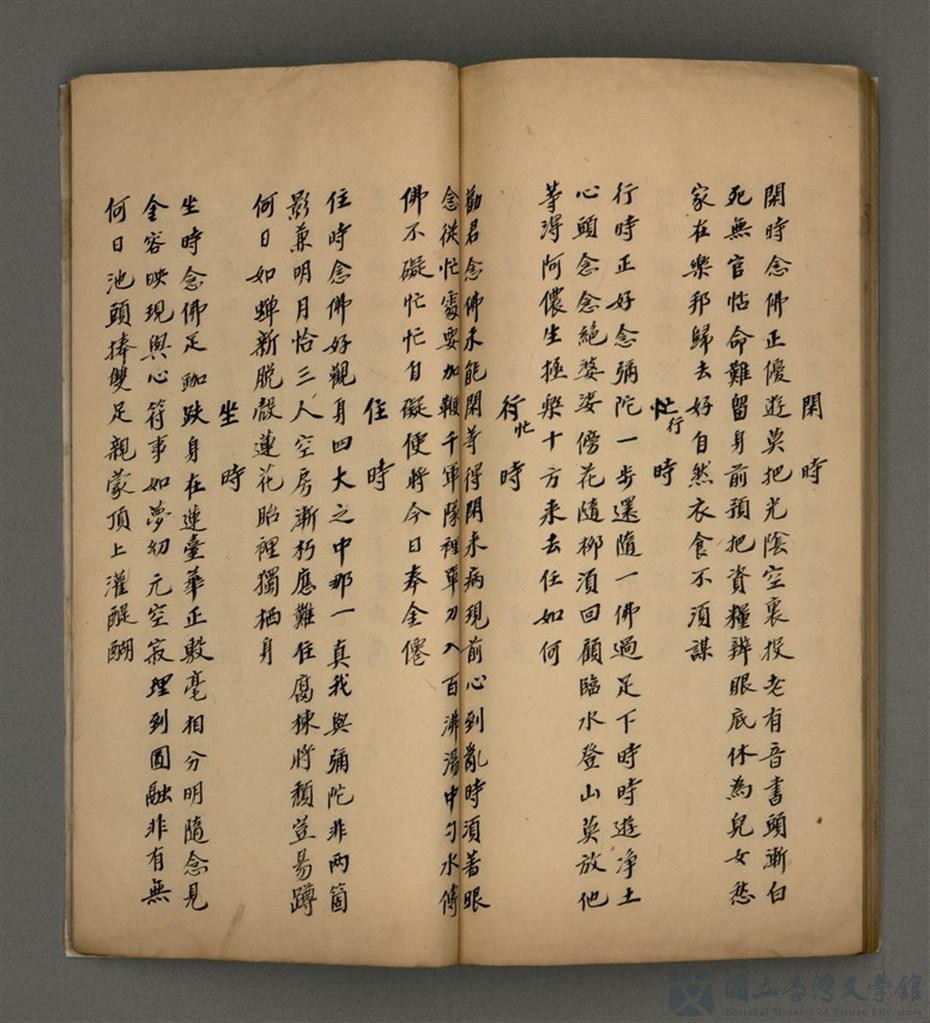 閑時
閑時念佛正優遊莫把光陰空裏投老有音書頭漸白
死無官帖命難留身前預把資糧辨眼底休為兒女愁
家在樂邦歸去好自然衣食不須謀
忙行時
行時正好念彌陀一步還隨一佛過足下時時遊净土
心頭念念絕婆娑傍花隨柳須回顧臨水登山莫放他
等得阿儂生極樂十方来去任如何
行忙時
勸君念佛未能閑等得閑来病現前心到亂時須著眼
念從忙處要加鞭千軍隊裡單刀入百沸湯中勺水傳
佛不礙忙忙自礙便將今日奉金僊
住時
住時念佛好觀身四大之中那一真我與彌陀非兩箇
影兼明月恰三人空房漸朽應難住腐棟將頹豈易蹲
何日如蟬新脫殼蓮花胎裡獨栖身
坐時
坐時念佛足跏趺身在蓮臺華正敷毫相分明隨念見
金容映現與心符事如夢幻元空寂理到圓融非有無
何日池頭捧雙足親蒙頂上灌醍醐
國立臺灣文學館
National Museum of Taiwan Literature